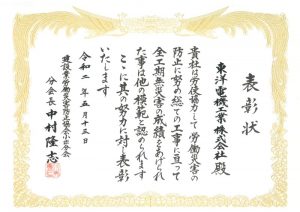 表彰状
東洋電機工業株式会社 殿
貴社は労使協力して労働災害の
防止に努め総ての工事に亘って
全工期無災害の成績をあげられ
た事は他の模範と認められます
ここに其の努力に対し表彰
いたします
令和二年五月十三日
建設業労働災害防止協会小出分会
分会長 中村隆志